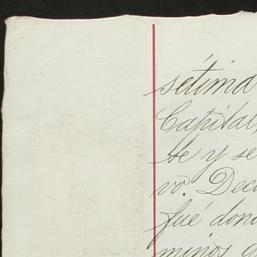 sétima
Capital,
te y se
vo. Dec
fué don
minos q